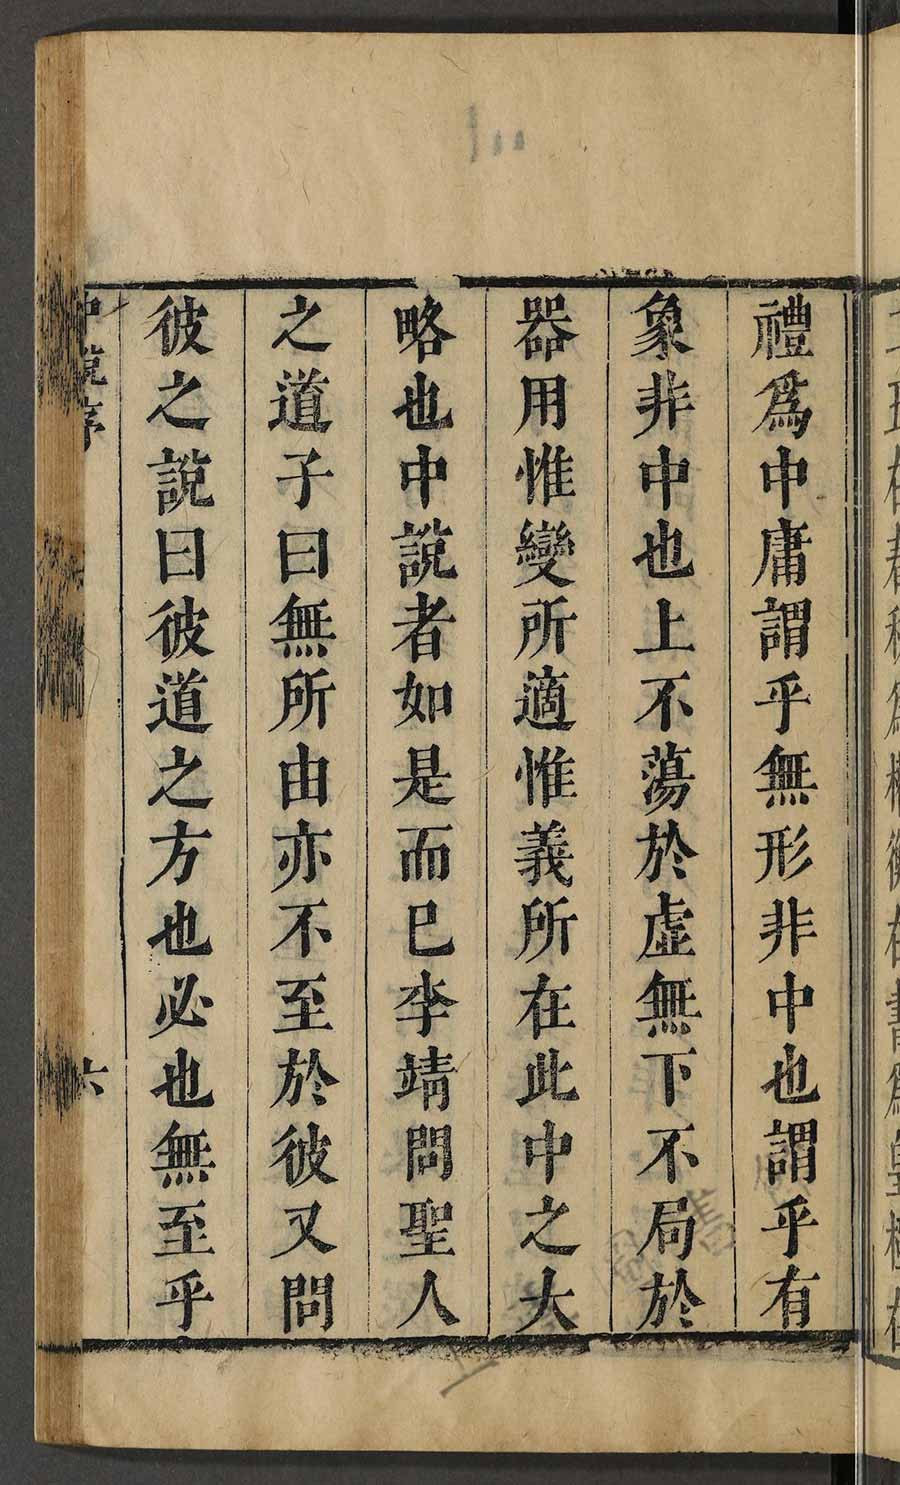 禮爲中庸謂乎無形非中也謂乎有
象非中也上不蕩於虛無下不局於
器用惟變所適惟義所在此中之大
略也中説者如是而已李靖問聖人
之道子曰無所由亦不至於彼又問
彼之説曰彼道之方也必也無至乎
中説序
六